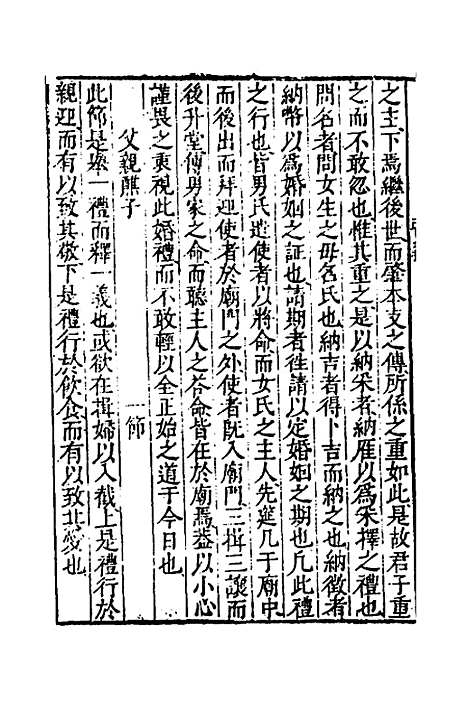 之主下焉繼後世而肇本支之傳所係之重如此是故君子重
之而不敢忽也惟其重之是以納采者納雁以爲采擇之禮也
問名者問女生之母名氏也納吉者得卜吉而納之也納徵者
納幣以爲婚姻之証也請期者徃請以定婚姻之期也凡此禮
之行也皆男氏遣使者以將命而女氏之主人先筵几于廟中
而後出而拜迎使者於廟門之外使者旣入廟門三揖三讓而
後升堂傳男家之命而聽主人之答命皆在於廟焉葢以小心
謹畏之衷視此婚禮而不敢輕以全正始之道于今日也
父親醮子　一節
此節是舉一禮而釋一義也或欲在揖婦以入截上是禮行於
親迎而有以致其敬下是禮行於飲食而有以致其愛也